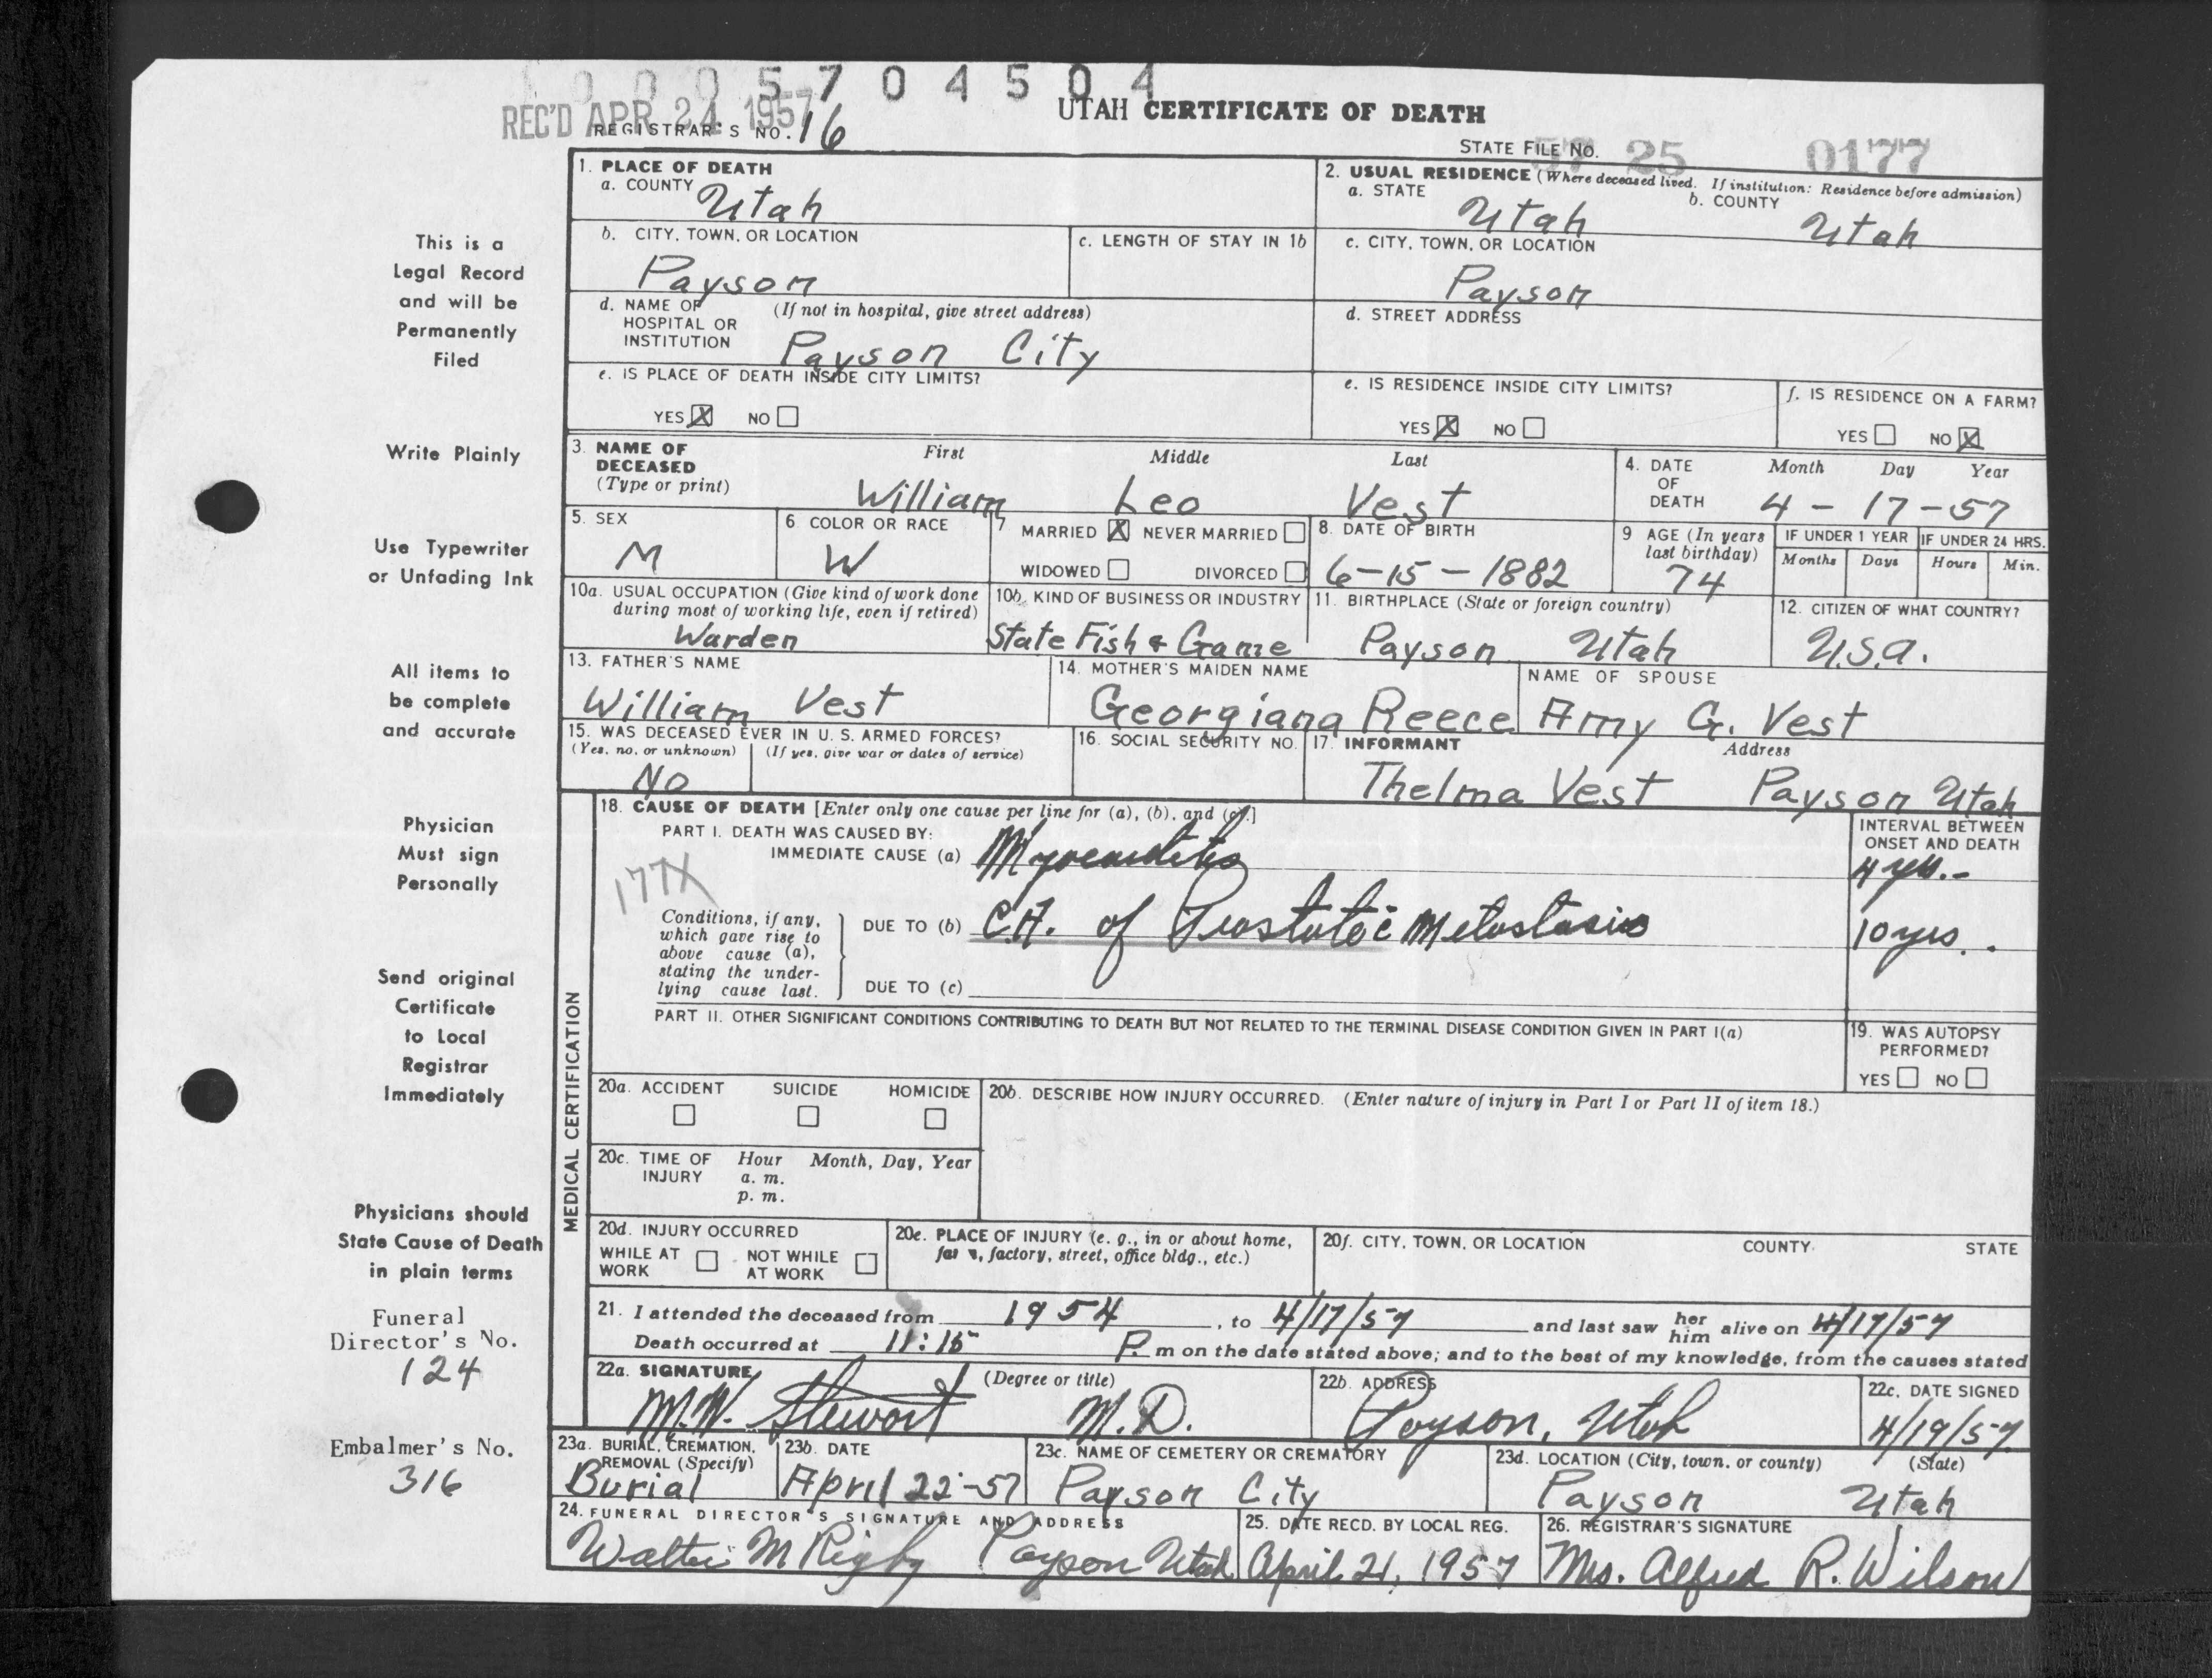 0005704504
REC'D APR 24 1957
UTAH CERTIFICATE OF DEATH
REGISTRAR'S NO. 16
STATE FILE NO. 57 25 0177
1. PLACE OF DEATH
a. COUNTY Utah
2. USUAL RESIDENCE (Where deceased lived. If institution: Residence before admission)
a. STATE Utah b. COUNTY Utah
b. CITY, TOWN, OR LOCATION Payson
c. LENGTH OF STAY IN 1b
c. CITY, TOWN, OR LOCATION Payson
d. NAME OF HOSPITAL OR INSTITUTION (If not in hospital, give street address) Payson City
d. STREET ADDRESS
e. IS PLACE OF DEATH INSIDE CITY LIMITS?
YES X NO
e. IS RESIDENCE INSIDE CITY LIMITS?
YES X NO
f. IS RESIDENCE ON A FARM?
YES NO X
3. NAME OF DECEASED (Type or print)
First Middle Last
William Leo Vest
4. DATE OF DEATH
Month Day Year
4-17-57
5. SEX M
6. COLOR OR RACE W
7. MARRIED X NEVER MARRIED
WIDOWED DIVORCED
8. DATE OF BIRTH 6-15-1882
9 AGE (In years last birthday) 74
IF UNDER 1 YEAR Months Days
IF UNDER 24 HRS. Hours Min.
10a. USUAL OCCUPATION (Give kind of work done during most of working life, even if retired) Warden
10b. KIND OF BUSINESS OR INDUSTRY State Fish & Game
11. BIRTHPLACE (State or foreign country) Payson Utah
12. CITIZEN OF WHAT COUNTRY? U.S.A.
13. FATHER'S NAME William Vest
14. MOTHER'S MAIDEN NAME Georgiana Reece
NAME OF SPOUSE Amy G. Vest
15. WAS DECEASED EVER IN U. S. ARMED FORCES?
(Yes, no, or unknown) (If yes, give war or dates of service)
No
16. SOCIAL SECURITY NO.
17. INFORMANT Address
Thelma Vest Payson Utah
18. CAUSE OF DEATH [Enter only one cause per line for (a), (b), and (c).]
PART I. DEATH WAS CAUSED BY:
IMMEDIATE CAUSE (a) Myocarditis
INTERVAL BETWEEN ONSET AND DEATH
4 yrs.-
177X
Conditions, if any, which gave rise to above cause (a), stating the underlying cause last.
DUE TO (b) CA. of Prostate c̄ Metastasis
10 yrs.
DUE TO (c)
PART II. OTHER SIGNIFICANT CONDITIONS CONTRIBUTING TO DEATH BUT NOT RELATED TO THE TERMINAL DISEASE CONDITION GIVEN IN PART I(a)
19. WAS AUTOPSY PERFORMED?
YES NO
MEDICAL CERTIFICATION
20a. ACCIDENT SUICIDE HOMICIDE
20b. DESCRIBE HOW INJURY OCCURRED. (Enter nature of injury in Part I or Part II of item 18.)
20c. TIME OF INJURY Hour Month, Day, Year
a. m.
p. m.
20d. INJURY OCCURRED
WHILE AT WORK NOT WHILE AT WORK
20e. PLACE OF INJURY (e. g., in or about home, farm, factory, street, office bldg., etc.)
20f. CITY, TOWN, OR LOCATION COUNTY STATE
21. I attended the deceased from 1954, to 4/17/57 and last saw her him alive on 4/17/57
Death occurred at 11:15 P. m on the date stated above; and to the best of my knowledge, from the causes stated
22a. SIGNATURE (Degree or title)
M.W. Stewart M.D.
22b. ADDRESS Payson, Utah
22c. DATE SIGNED 4/19/57
23a. BURIAL, CREMATION, REMOVAL (Specify) Burial
23b. DATE April 22-57
23c. NAME OF CEMETERY OR CREMATORY Payson City
23d. LOCATION (City, town, or county) (State)
Payson Utah
24. FUNERAL DIRECTOR'S SIGNATURE AND ADDRESS
Walter M Rigby Payson Utah
25. DATE RECD. BY LOCAL REG.
April 21, 1957
26. REGISTRAR'S SIGNATURE
Mrs. Alfred R. Wilson
This is a
Legal Record
and will be
Permanently
Filed
Write Plainly
Use Typewriter
or Unfading Ink
All items to
be complete
and accurate
Physician
Must sign
Personally
Send original
Certificate
to Local
Registrar
Immediately
Physicians should
State Cause of Death
in plain terms
Funeral
Director's No.
124
Embalmer's No.
316